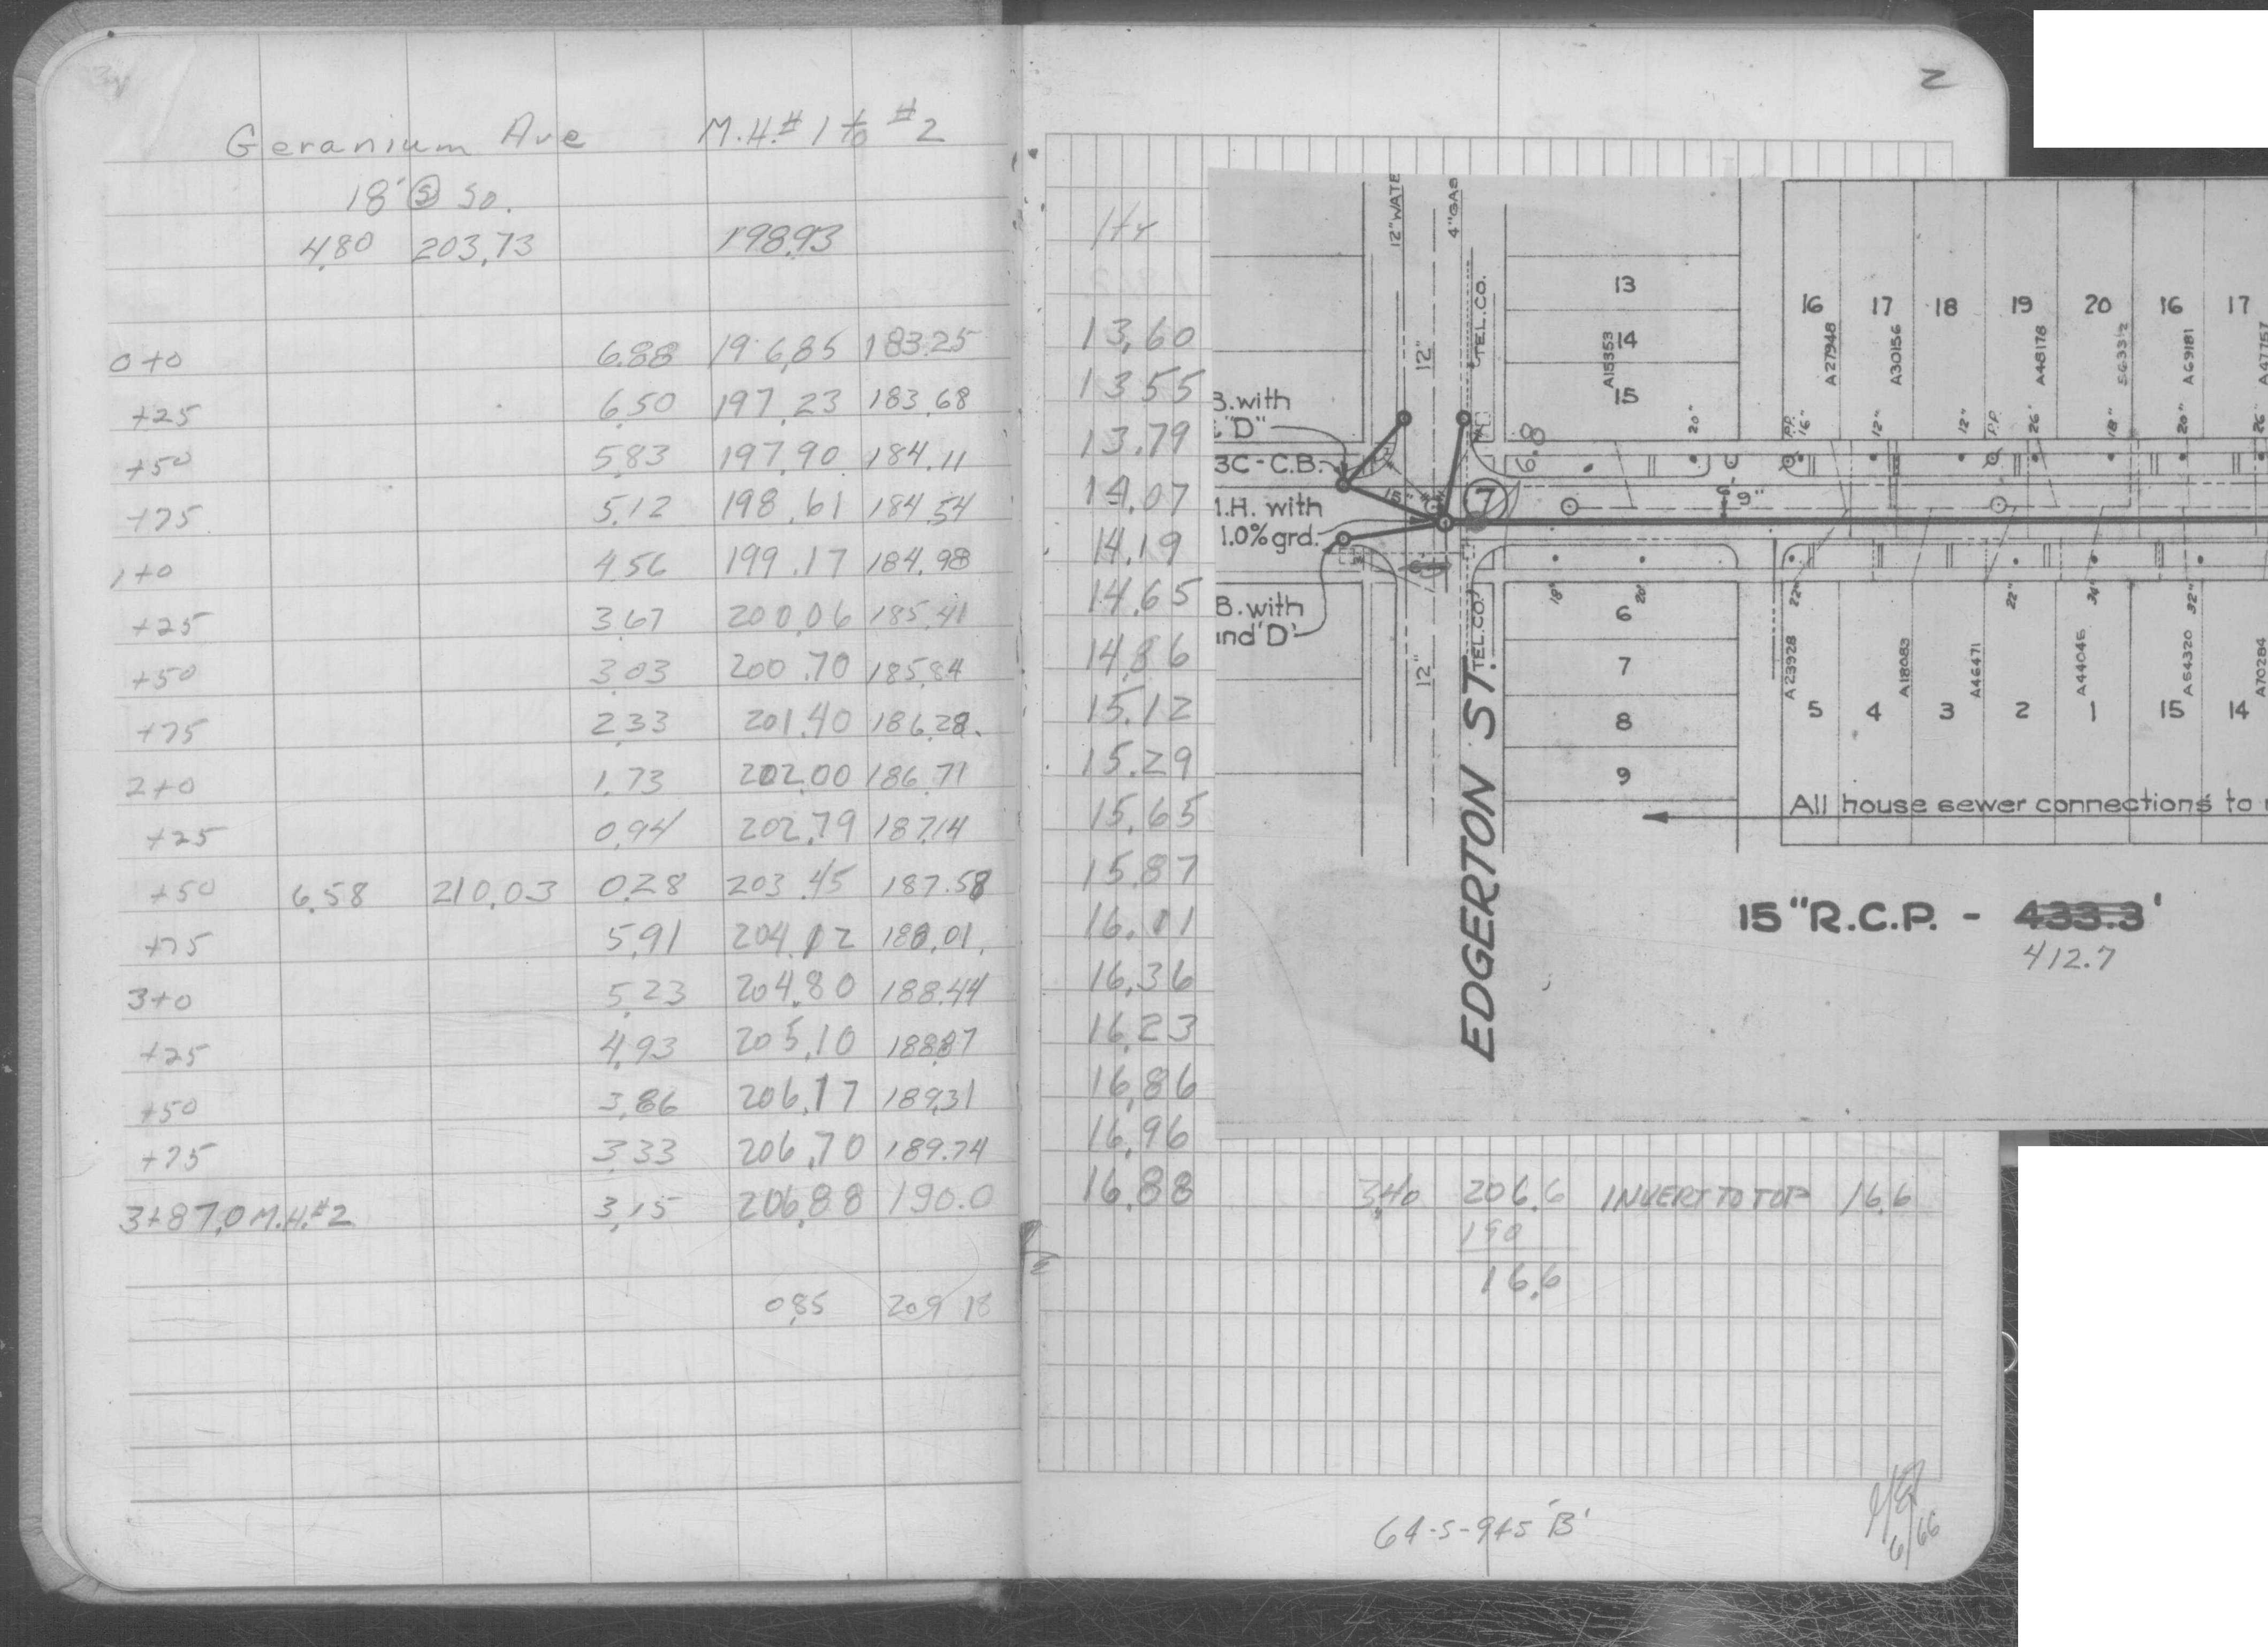 Geranium Ave M.H.# 1 to #2
18' Ⓢ So.
4.80 203.73 198.93
0+0 6.88 196.85 183.25 13.60
+25 6.50 197.23 183.68 13.55
+50 5.83 197.90 184.11 13.79
+75 5.12 198.61 184.54 14.07
1+0 4.56 199.17 184.98 14.19
+25 3.67 200.06 185.41 14.65
+50 3.03 200.70 185.84 14.86
+75 2.33 201.40 186.28 15.12
2+0 1.73 202.00 186.71 15.29
+25 0.94 202.79 187.14 15.65
+50 6.58 210.03 0.28 203.45 187.58 15.87
+75 5.91 204.12 188.01 16.11
3+0 5.23 204.80 188.44 16.36
+25 4.93 205.10 188.87 16.23
+50 3.86 206.17 189.31 16.86
+75 3.33 206.70 189.74 16.96
3+87.0 M.H.#2 3.15 206.88 190.0 16.88
0.85 209.18
2
12" WATE
4" GAS
12"
TEL.CO.
13
14
15
A15353
16 17 18 19 20 16 17
A27948 A30156 A48178 S6331½ A69181 A47757
20" P.P. 16" 12" 12" P.P. 26" 18" 20" 26"
B. with
"D"
3C-C.B.
M.H. with
1.0% grd.
B. with
and 'D'
15"
7
6.8
6' 9"
18" 20" 22" 22" 34" 32"
TEL.CO.
12"
6
7
8
9
A23928 A18083 A46471 A44046 A54320 A70284
5 4 3 2 1 15 14
All house sewer connections to
EDGERTON ST.
15" R.C.P. - 433.3'
412.7
3.40 206.6 INVERT TO TOP 16.6
190
16.6
64-S-945 'B'
6/66